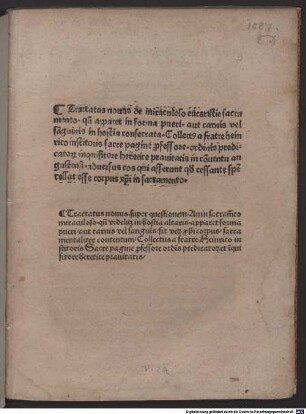 1087.
¶ Tractatus nouus de miraculoso eucaristie sacra
mento. qn̄ apparet in forma pueri. aut carnis vel
sanguinis in hostia consecrata. Collectꝰ a fratre hein
rico institoris sacre pagine p̄fessore. ordinis predi
catoꝝ inquisitore heretice prauitatis in cōuentu au
gustāmū. aduersus eos qui asserunt qḋ cessante spē
collat esse corpus xp̄i in sacramento.
¶ Tractatus nouus. super questionem. An in sacramēto
miraculoso. qn̄ videlicet in hostia altaris. apparet forma
pueri. aut carnis vel sanguis. sit veꝝ xp̄i corpus. sacra
mentaliter contentum. Collectus a fratre. Heinrico in
stitoris Sacre pagine p̄fessore ordis predicatoꝝ et inqui
sitore heretice prauitatis.